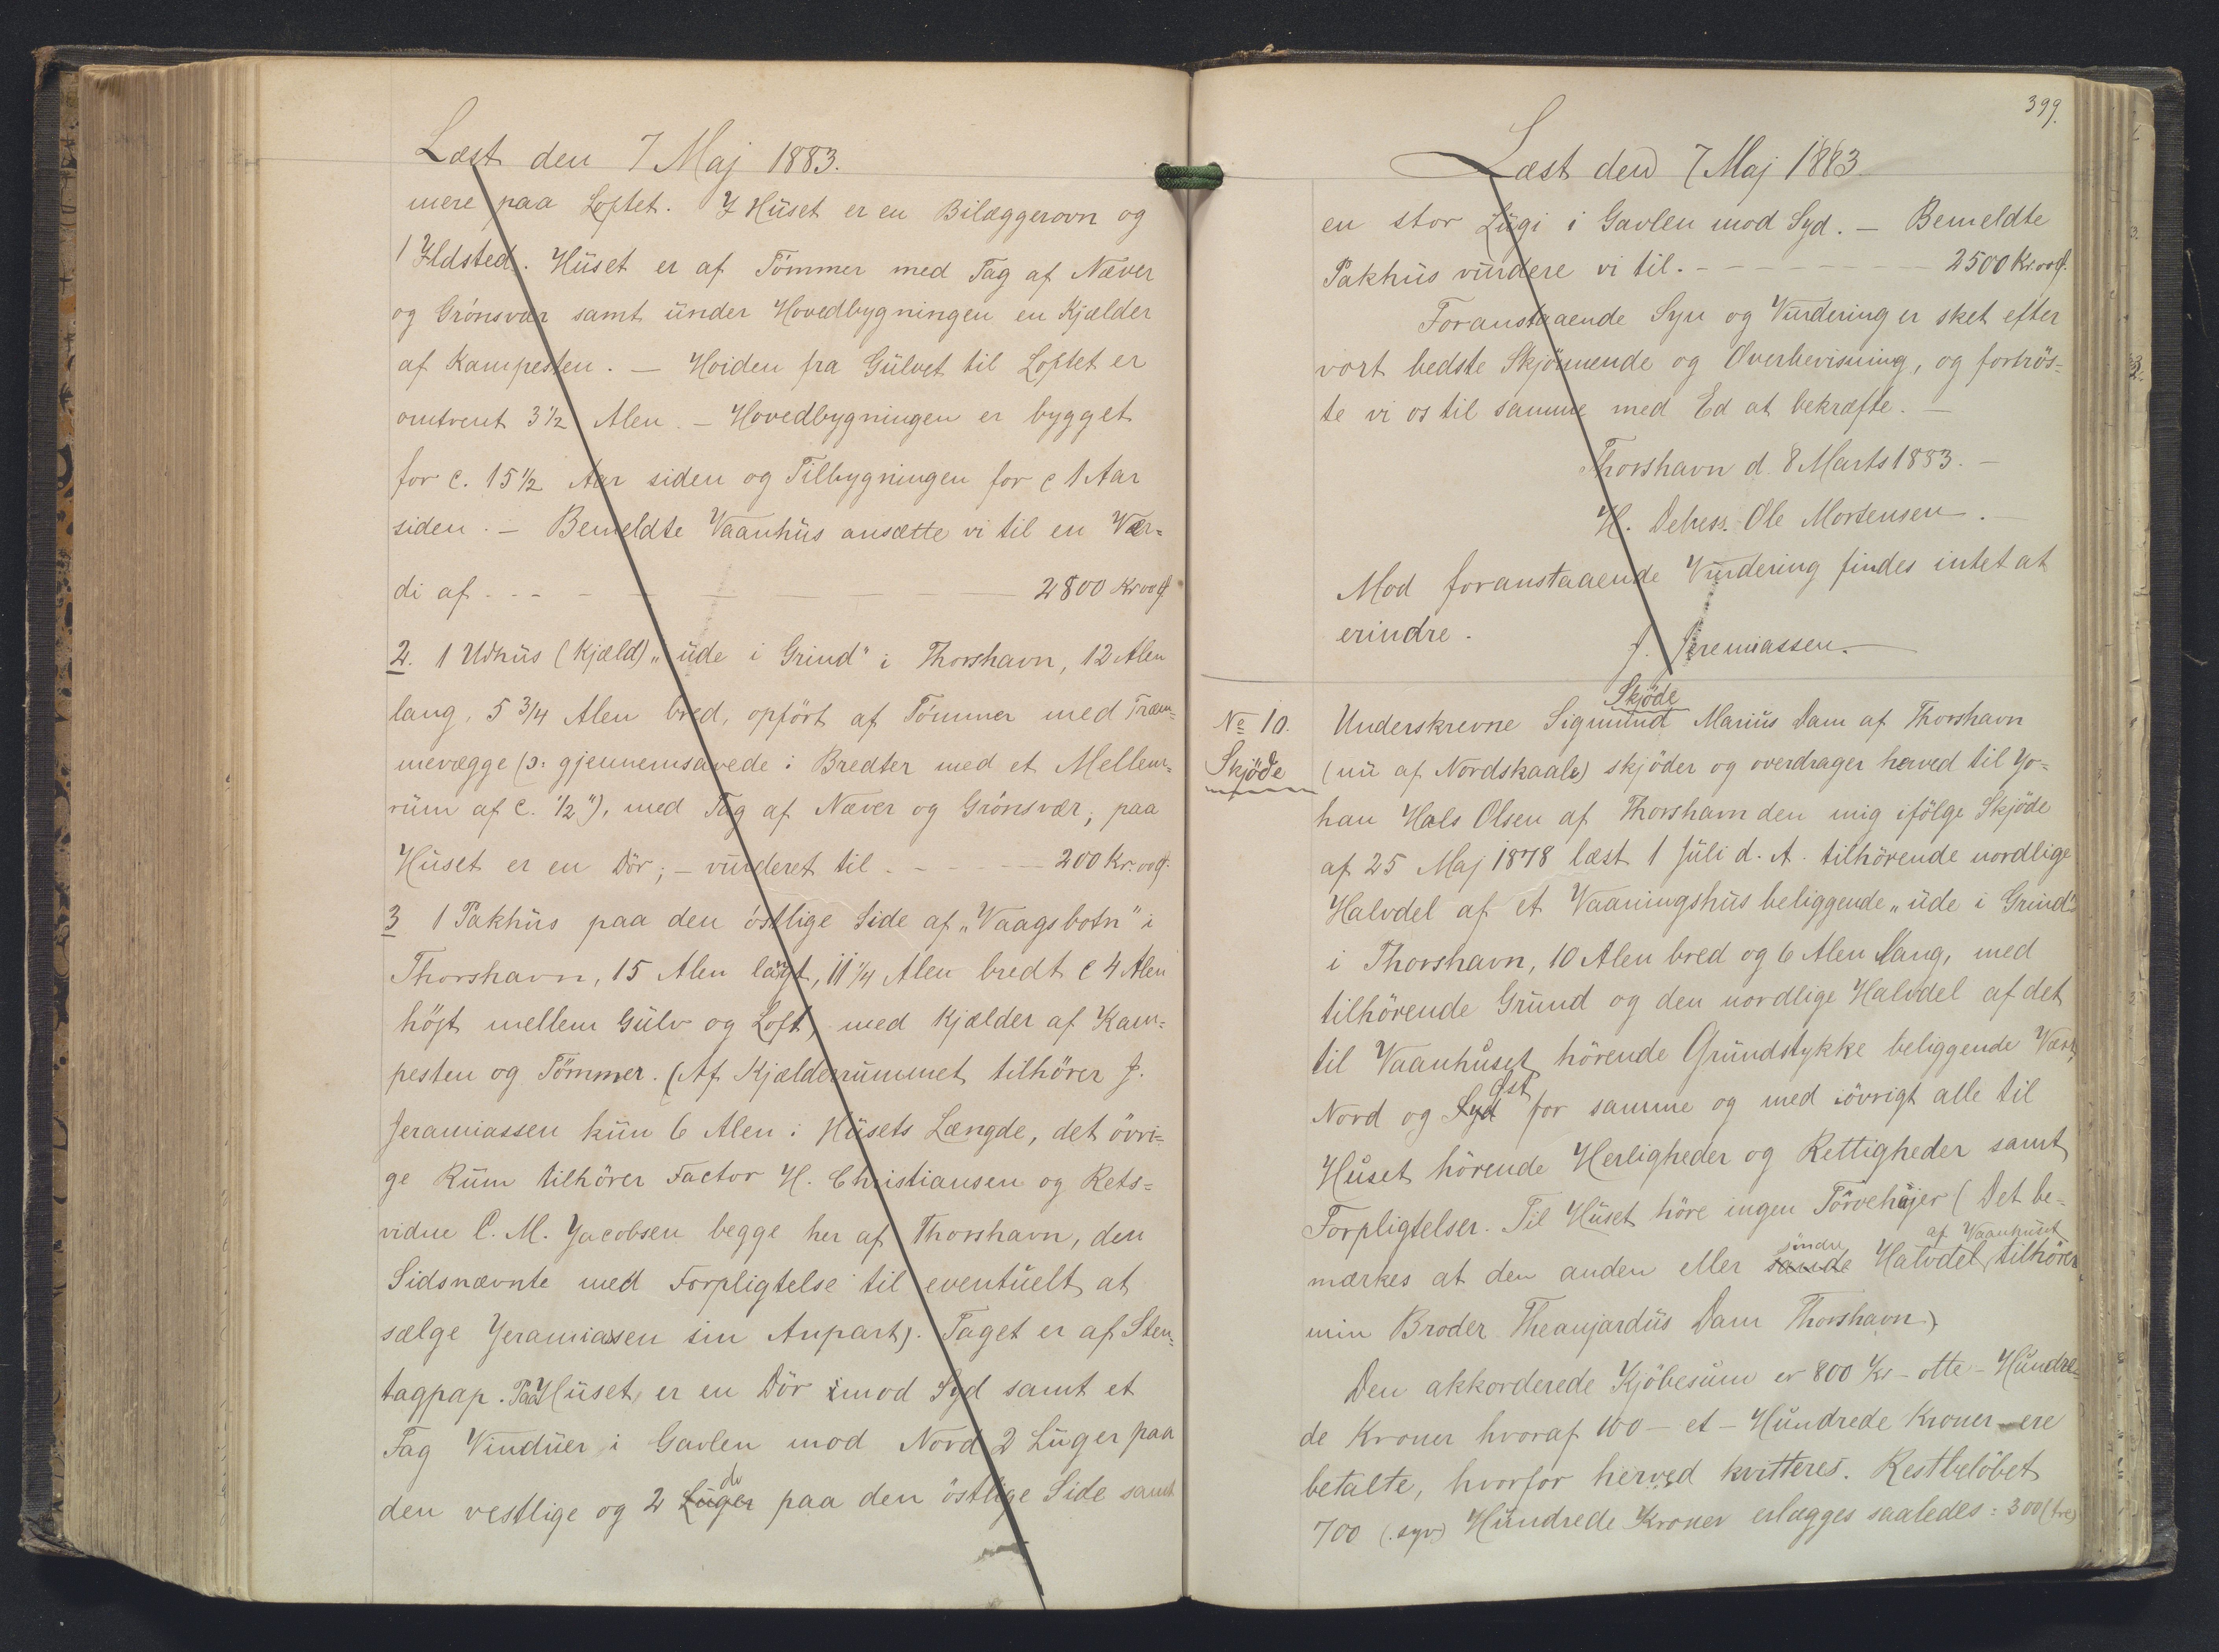 Læst den 7 Maj 1883.
mere paa Loftet. I Huset er en Bilæggerovn og
1 Ildsted. Huset er af Tömmer med Tag af Næver
og Grönsvær samt under Hovedbygningen en Kjælder
af Kampesten. — Hoiden fra Gulvet til Loftet er
omtrent 3 1/2 Alen. — Hovedbygningen er bygget
for c. 15 1/2 Aar siden og Tilbygningen for c 1 Aar
siden. — Bemeldte Vaanhus ansætte vi til en Vær=
di af - - - 2800 Kr 00 Ø
2. 1 Udhus (Kjæld) „ude i Grind" i Thorshavn, 12 Alen
lang, 5 3/4 Alen bred, opfört af Tömmer med Træm=
mevægge (ɔ: gjennemsavede i Bredter med et Mellem=
rum af c. 1/2"), med Tag af Næver og Grönsvær; paa
Huset er en Dör; — vurderet til - - - 200 Kr. 00 Ø.
3 1 Pakhus paa den östlige Side af „Vaagsbotn" i
Thorshavn, 15 Alen langt, 11 1/4 Alen bredt c 4 Alen
höjt mellem Gulv og Loft, med Kjælder af Kam=
pesten og Tömmer. (Af Kjælderrummet tilhörer J.
Jeramiassen kun 6 Alen i Husets Længde, det övri=
ge Rum tilhörer Factor H. Christiansen og Rets=
vidne C. M. Jacobsen begge her af Thorshavn, den
Sidsnævnte med Forpligtelse til eventuelt at
sælge Jeramiassen sin Anpart). Taget er af Sten=
tagpap. Paa Huset er en Dör imod Syd samt et
Tag Vinduer i Gavlen mod Nord 2 Luger paa
den vestlige og 2 Luger do paa den östlige Side samt
399.
Læst den 7 Maj 1883
en stor Lugi i Gavlen mod Syd. — Bemeldte
Pakhus vurdere vi til. - - - 2500 Kr. 00 Ø.
Foranstaaende Syn og Vurdering er sket efter
vort bedste Skjönnende og Overbevisning, og fortrös=
te vi os til samme med Ed at bekræfte. —
Thorshavn d. 8 Marts 1883. —
H. Debess. Ole Mortensen. —
Mod foranstaaende Vurdering findes intet at
erindre.
J. Jeremiassen.
Skjöde
No 10.
Skjöde
Underskrevne Sigmund Marius Dam af Thorshavn
(nu af Nordskaale) skjöder og overdrager herved til Jo=
han Hals Olsen af Thorshavn den mig ifölge Skjöde
af 25 Maj 1878 læst 1 Juli d. A. tilhörende nordlige
Halvdel af et Vaaningshus beliggende „ude i Grind"
i Thorshavn, 10 Alen bred og 6 Alen lang, med
tilhörende Grund og den nordlige Halvdel af det
til Vaanhuset hörende Grundstykke beliggende Vest,
Nord og Syd Öst for samme og med iövrigt alle til
Huset hörende Herligheder og Rettigheder samt
Forpligtelser. Til Huset höre ingen Törvehöjer (Det be=
mærkes at den anden eller söndre Halvdel af Vaanhuset tilhörer
min Broder Theanjardus Dam Thorshavn)
Den akkorderede Kjöbesum er 800 Kr — otte — Hundre=
de Kroner hvoraf 100 — et — Hundrede Kroner ere
betalte, hvorfor herved kvitteres. Restbelöbet
700 (syv) Hundrede Kroner erlægges saaledes: 300 (tre)